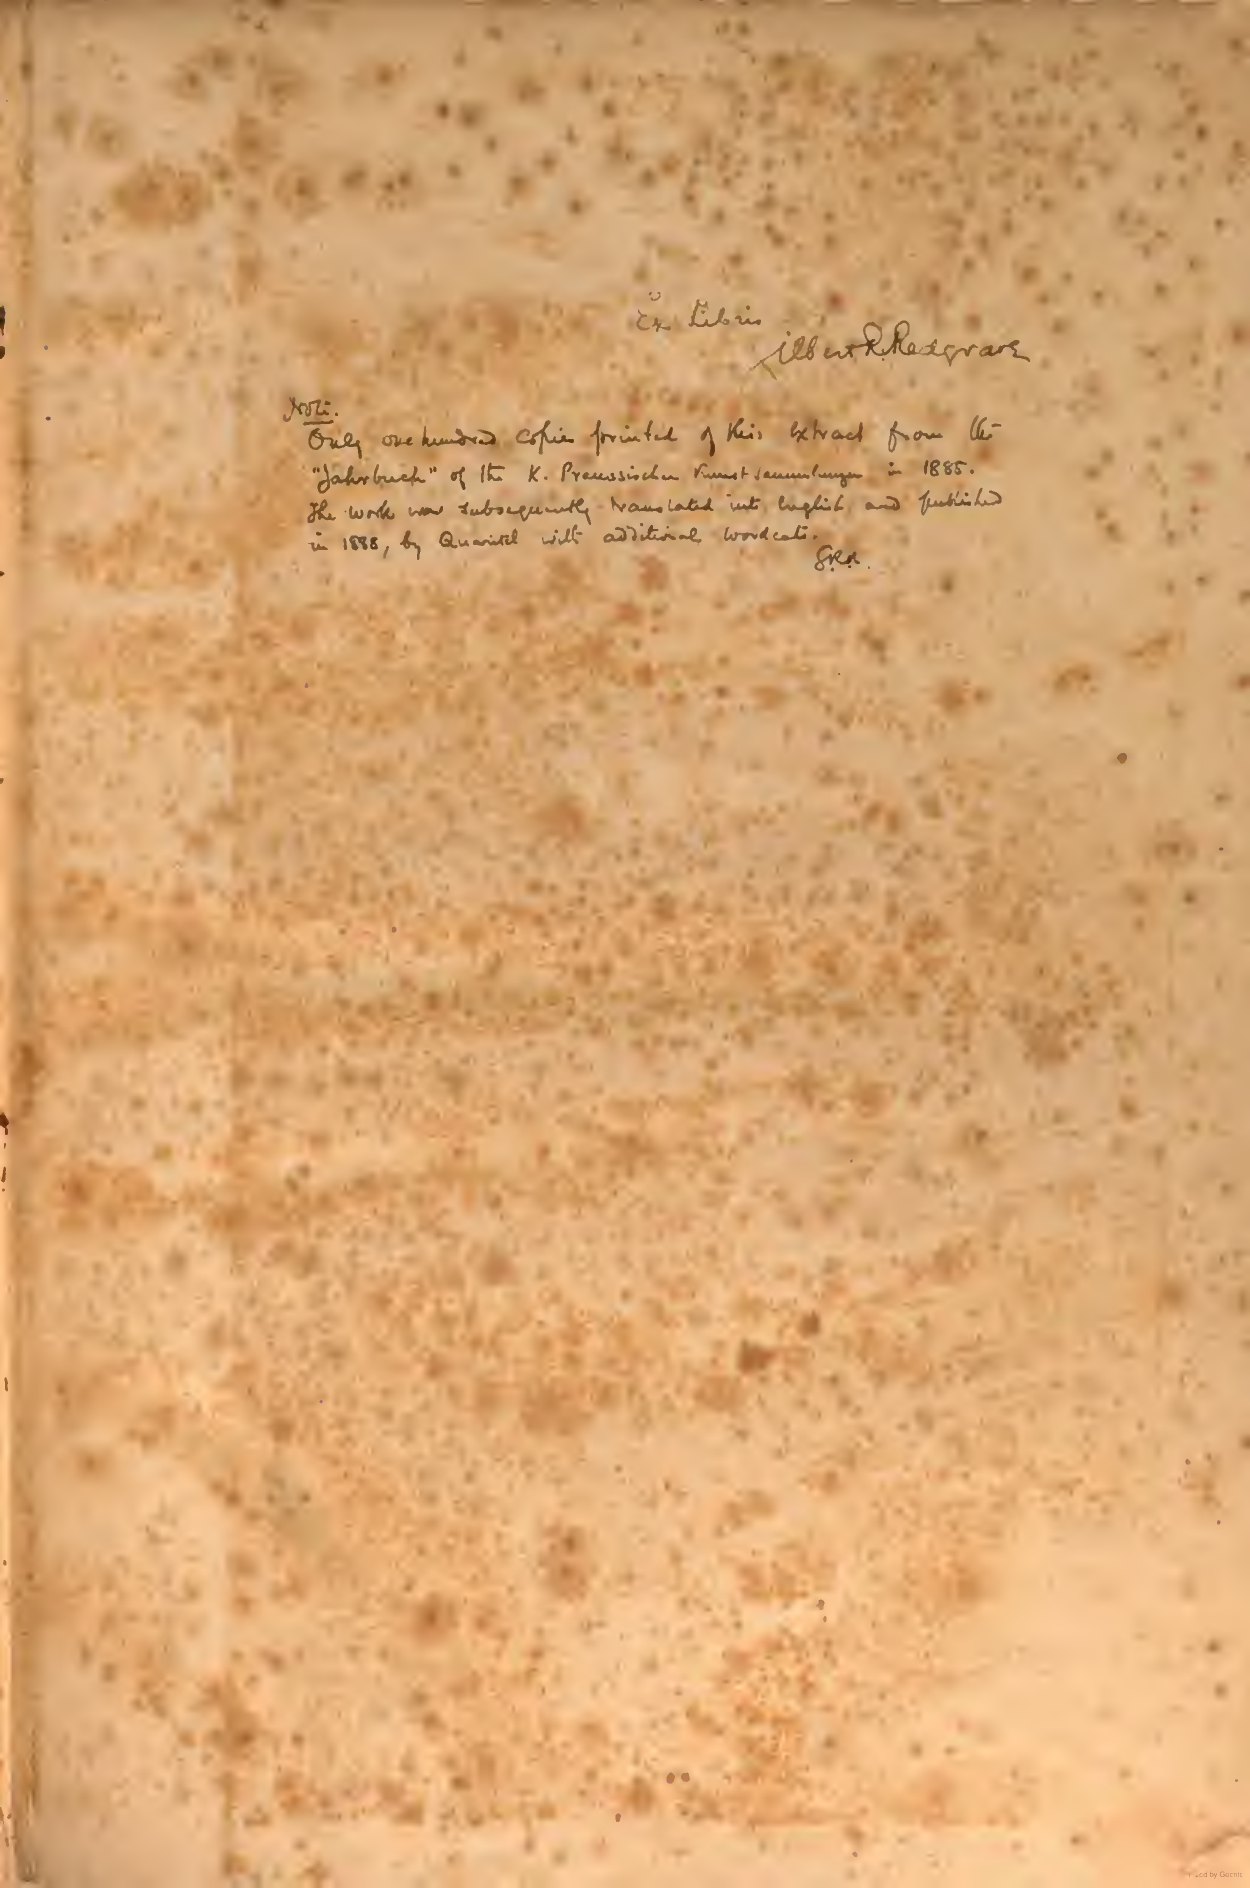 Ex Libris
Gilbert R. Redgrave
Note.
Only one hundred copies printed of this extract from the
"Jahrbuch" of the K. Preussischen Kunstsammlungen in 1885.
The work was subsequently translated into English, and published
in 1888, by Quaritch with additional woodcuts.
G.R.R.